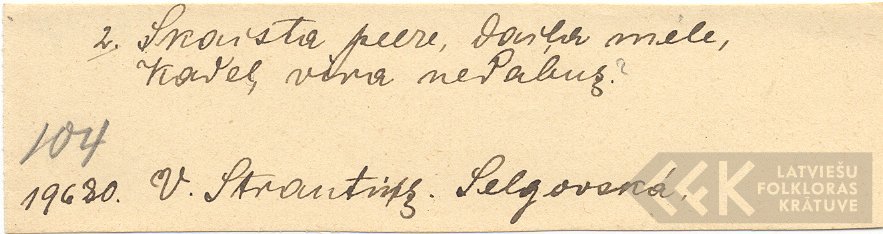 2. Skaista peere, daiļa mēle,
Kadēļ vīra nedabuj?
104
19680. V. Strautiņš. Selgovskā.
LATVIEŠU
FOLKLORAS
KRĀTUVE